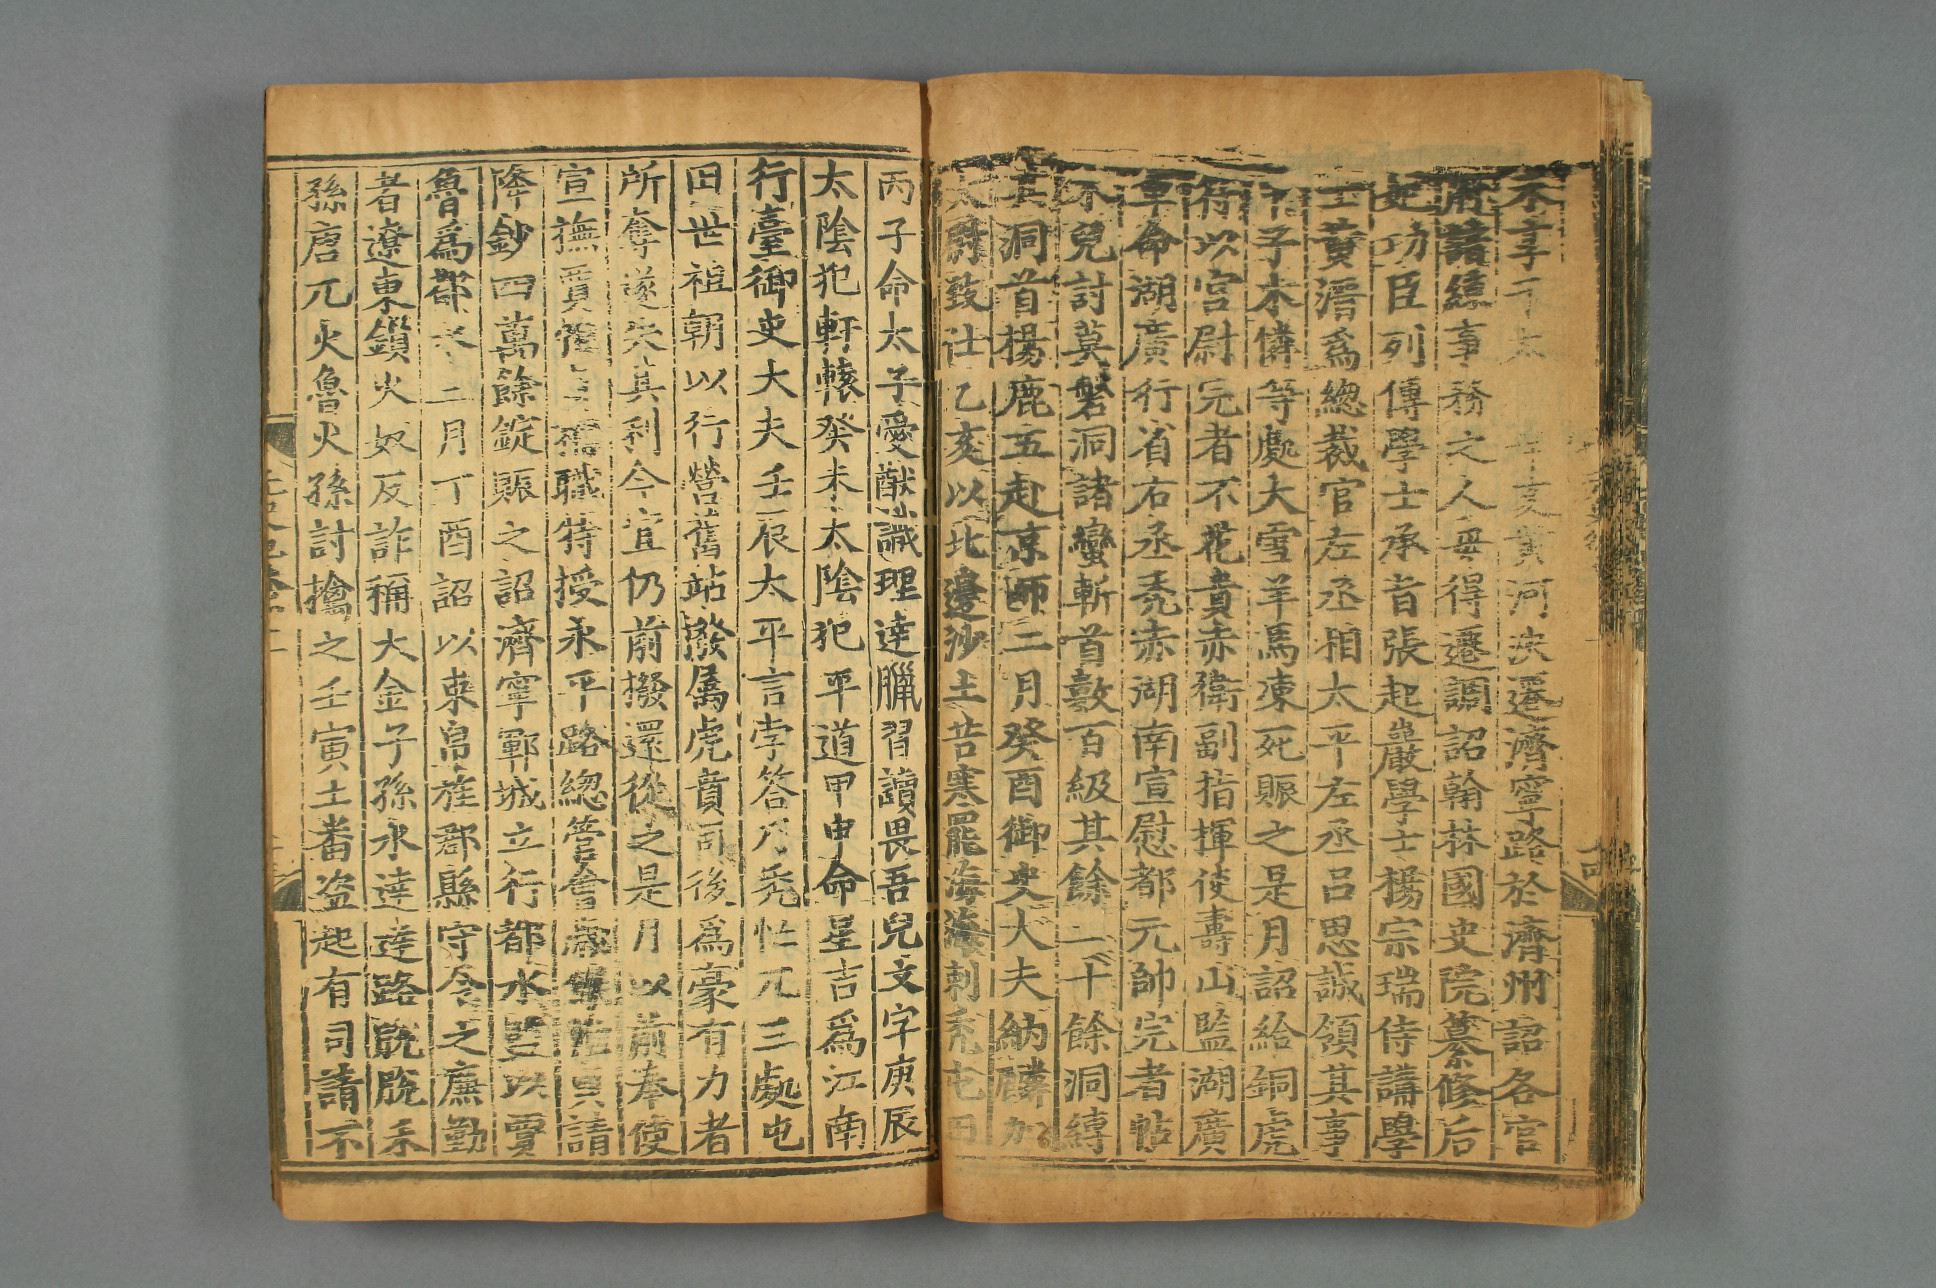 不 辛亥黃河決遷濟寧路於濟州詔各官
諸 事務之人毋得遷調詔翰林國史院纂修后
妃功臣列傳學士承旨張起巖學士楊宗瑞侍講學
士黃溍爲總裁官左丞相太平左丞呂思誠領其事
子木憐等處大雪羊馬凍死賑之是月詔給銅虎
符以宮尉完者不花貴赤衛副指揮使壽山監湖廣
軍命湖廣行省右丞禿赤湖南宣慰都元帥完者帖
木兒討莫磐洞諸蠻斬首數百級其餘二十餘洞縛
其洞首楊鹿五赴京師二月癸酉御史大夫納麟加
太尉致仕乙亥以北邊沙土苦寒罷海海剌禾屯田
丙子命太子愛猷識理達臘習讀畏吾兒文字庚辰
太陰犯軒轅癸未太陰犯平道甲申命星吉爲江南
行臺御史大夫壬辰太平言孛答乃禿忙兀三處屯
田世祖朝以行營舊站撥屬虎賁司後爲豪有力者
所奪遂失其利今宜仍前撥還從之是月以前奉使
宣撫賈惟 稱職特授永平路總管會歲 請
降鈔四萬餘錠賑之詔濟寧鄆城立行都水監以賈
魯爲都水二月丁酉詔以束帛旌郡縣守令之廉勤
者遼東鎖火奴反詐稱大金子孫水達達路脫脫禾
孫唐兀火魯火孫討擒之壬寅土番盜起有司請不